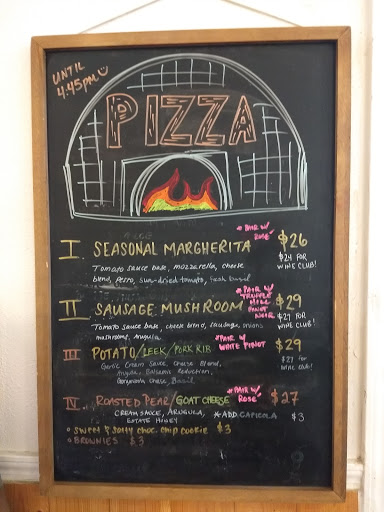 UNTIL
4:45pm
PIZZA
I. SEASONAL MARGHERITA *PAIR W/ ROSÉ $26
Tomato sauce base, mozzarella, cheese $24 FOR
blend, pesto, sun-dried tomato, fresh basil WINE CLUB!
II SAUSAGE MUSHROOM *PAIR W/ TRUFFLE HILL PINOT NOIR $29
Tomato sauce base, cheese blend, sausage, onions $27 FOR
mushrooms, arugula WINE CLUB!
III POTATO/LEEK/PORK RIB *PAIR W/ WHITE PINOT $29
Garlic Cream Sauce, Cheese Blend, $27 for
Arugula, Balsamic Reduction, wine club!
Gorgonzola Cheese, Basil
IV. ROASTED PEAR/GOAT CHEESE *PAIR W/ ROSÉ $27
CREAM SAUCE, ARUGULA, *ADD CAPICOLA $3
ESTATE HONEY
SWEET & SALTY CHOC. CHIP COOKIE $3
BROWNIES $3